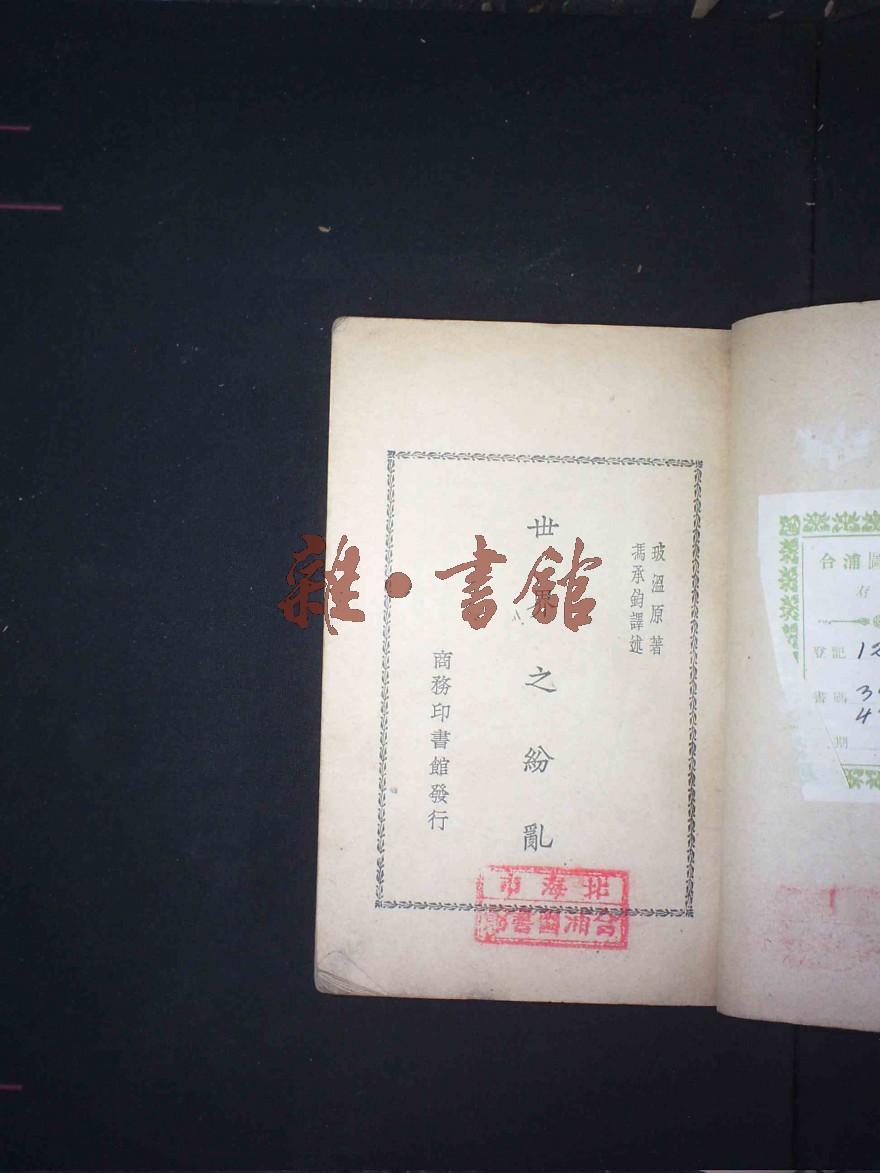 玻溫原著
馮承鈞譯述
世界之紛亂
商務印書館發行
雜·書館
北海市
合浦圖
登記 12
書碼 3
4
期